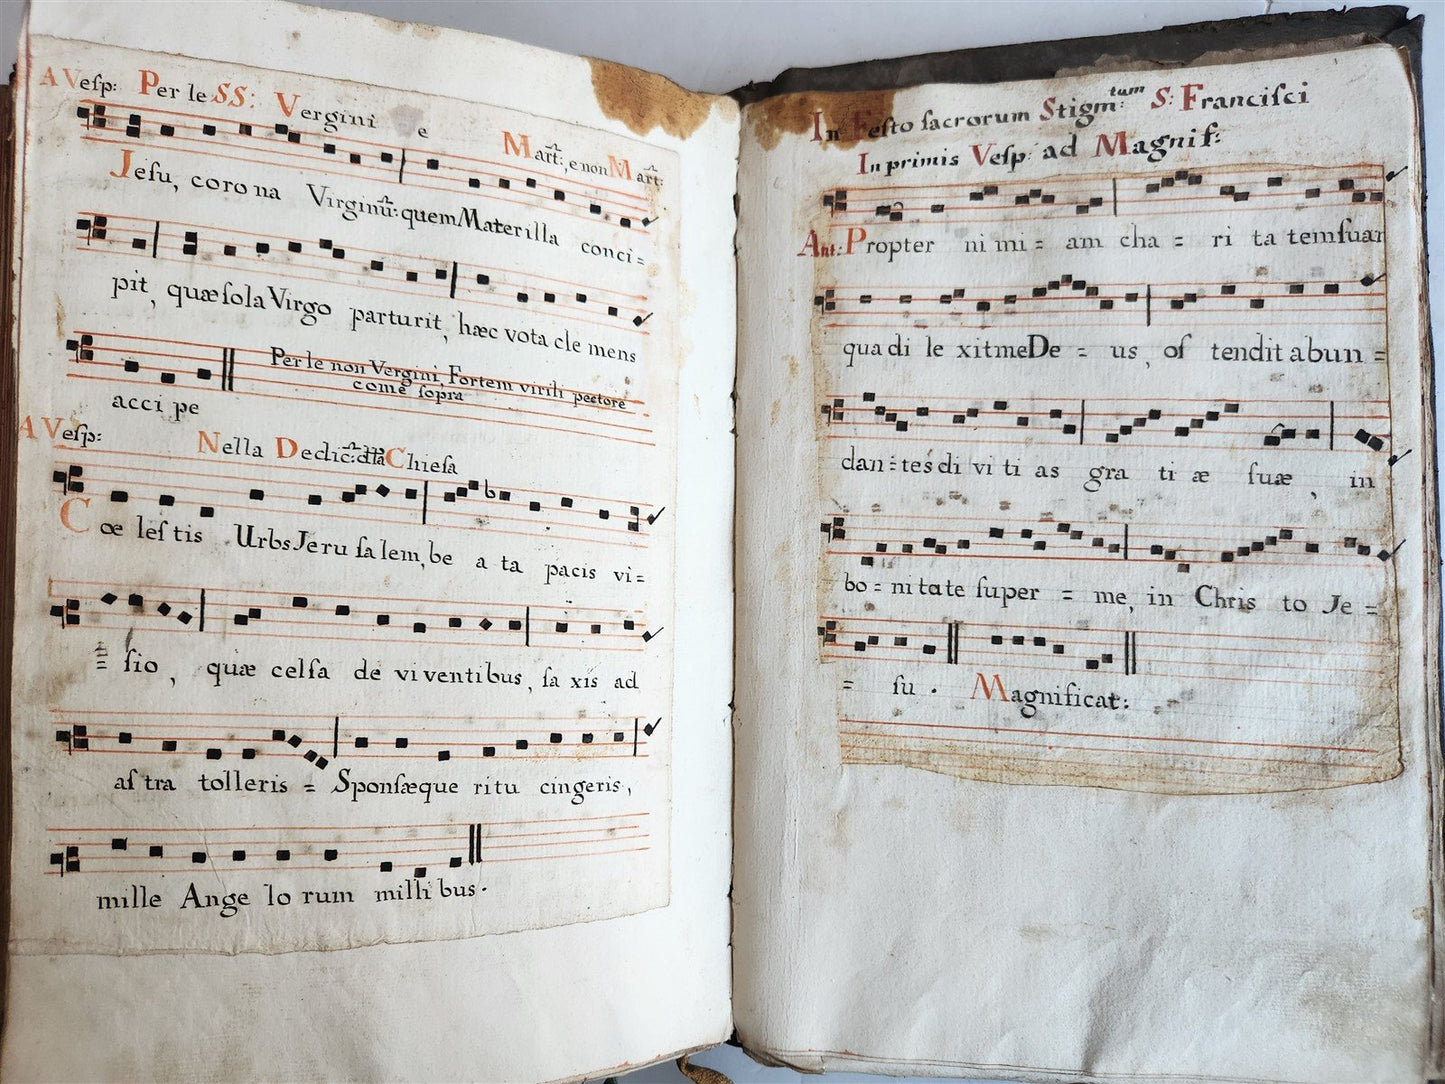 A Vesp: Per le SS: Vergini e Mart:, e non Mart:
Jesu, coro na Virginũ: quem Mater illa conci=
pit, quæ sola Virgo parturit, hæc vota cle mens
Per le non Vergini, Fortem virili pectore
come sopra
acci pe
A Vesp: Nella Dedic: dlla Chiesa
Cœ les tis Urbs Jeru salem, be a ta pacis vi=
= sio, quæ celsa de viventibus, sa xis ad
as tra tolleris = Sponsæque ritu cingeris,
mille Ange lo rum milli bus.
In Festo sacrorum Stigm:tum S: Francisci
In primis Vesp: ad Magnif:
Ant: Propter ni mi = am cha = ri ta tem suam
qua di le xit me De = us, os tendit abun =
dan = tes di vi ti as gra ti æ suæ, in
bo = ni tate super = me, in Chris to Je =
= su. Magnificat: